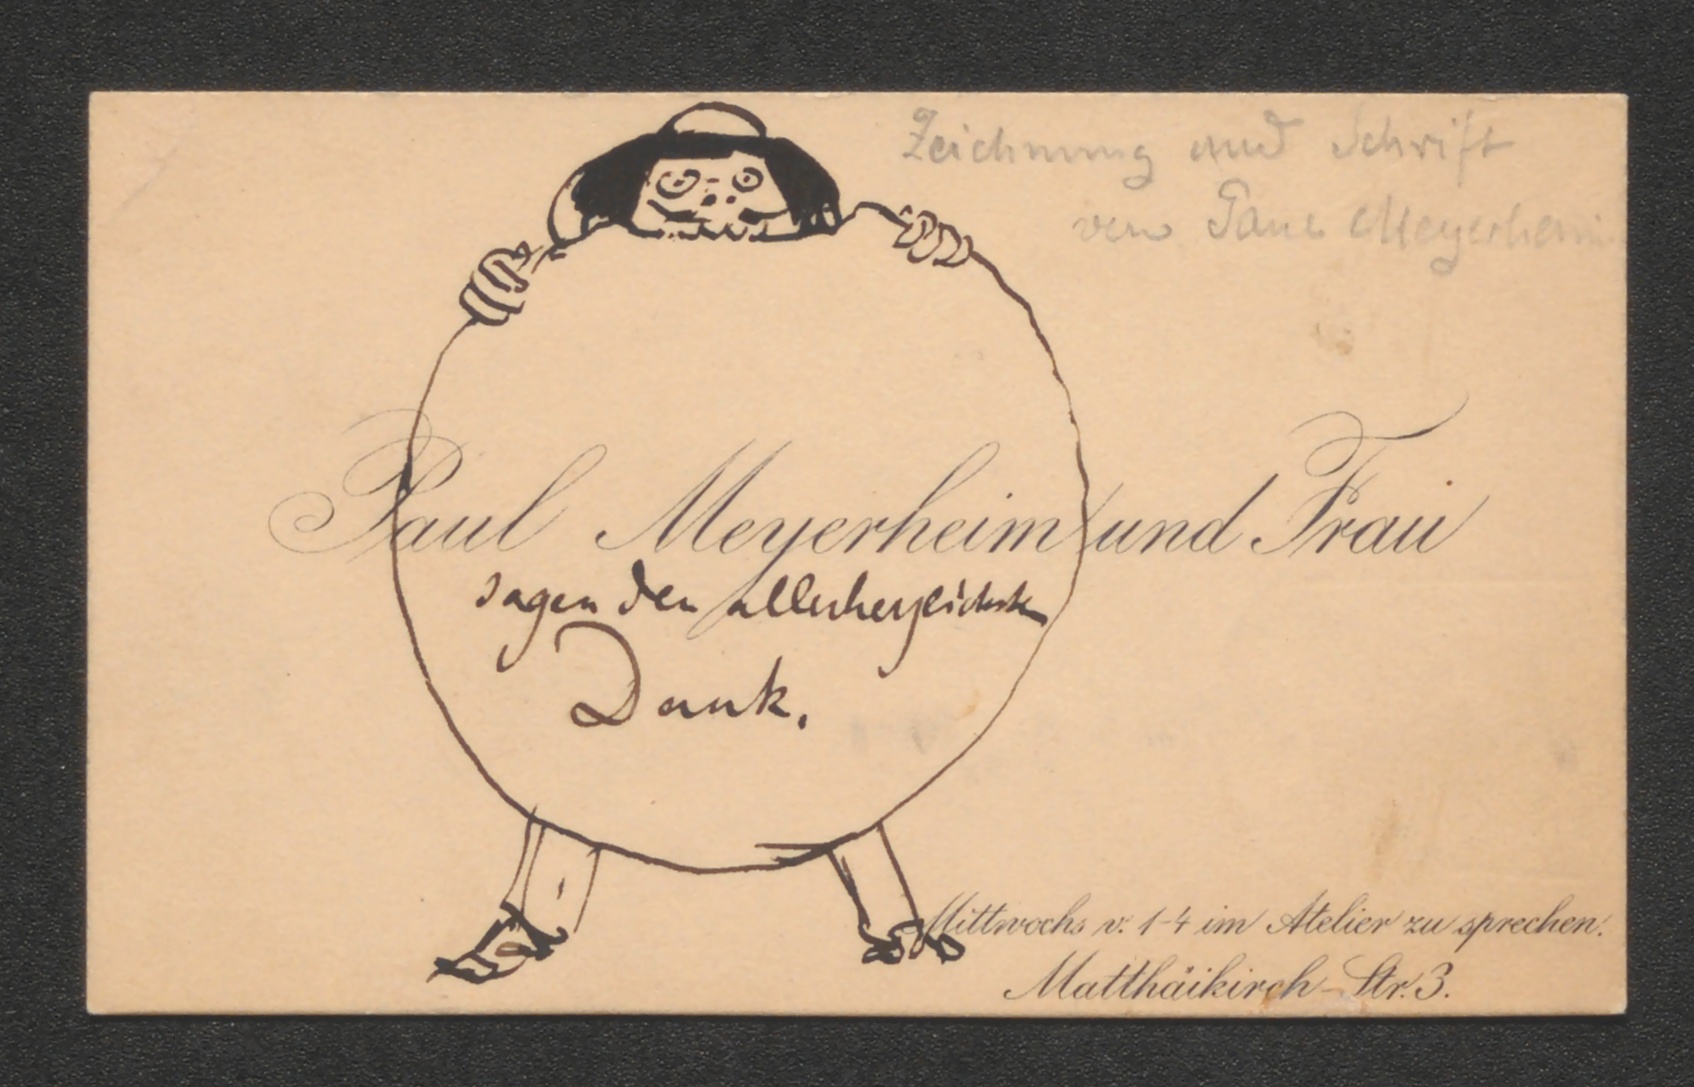 Zeichnung und Schrift
von Paul Meyerheim
Paul Meyerheim und Frau
sagen den allerherzlichsten
Dank.
Mittwochs v. 1-4 im Atelier zu sprechen.
Matthäikirch-Str. 3.